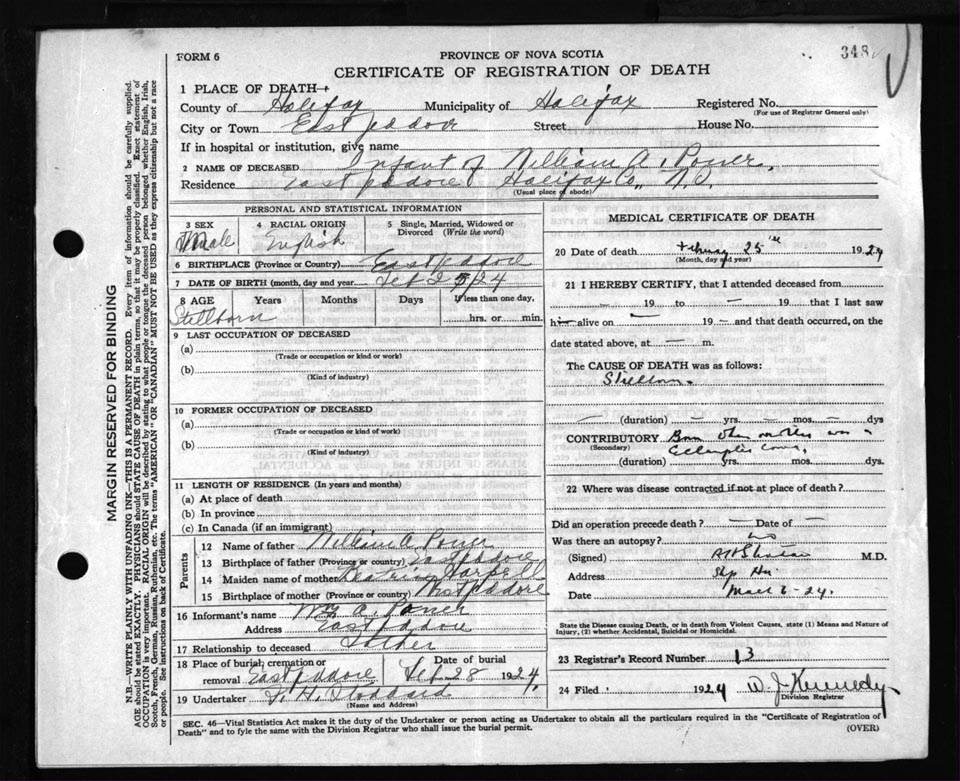 FORM 6
PROVINCE OF NOVA SCOTIA
348
CERTIFICATE OF REGISTRATION OF DEATH
1 PLACE OF DEATH—
County of Halifax Municipality of Halifax Registered No.
(For use of Registrar General only)
City or Town East Street House No.
If in hospital or institution, give name
2 NAME OF DECEASED Infant of William A. Power,
Residence East Halifax Co., N.S.
(Usual place of abode)
PERSONAL AND STATISTICAL INFORMATION
3 SEX 4 RACIAL ORIGIN 5 Single, Married, Widowed or Divorced (Write the word)
English
6 BIRTHPLACE (Province or Country) East
7 DATE OF BIRTH (month, day and year) Feb 25 24
8 AGE Years Months Days If less than one day,
Stillborn hrs. or min.
9 LAST OCCUPATION OF DECEASED
(a)
(Trade or occupation or kind or work)
(b)
(Kind of industry)
10 FORMER OCCUPATION OF DECEASED
(a)
(Trade or occupation or kind or work)
(b)
(Kind of industry)
11 LENGTH OF RESIDENCE (In years and months)
(a) At place of death
(b) In province
(c) In Canada (if an immigrant)
Parents
12 Name of father William A Power
13 Birthplace of father (Province or country) East
14 Maiden name of mother
15 Birthplace of mother (Province or country) West
16 Informant's name Wm A. Power
Address East
17 Relationship to deceased Father
18 Place of burial, cremation or removal East Date of burial Feb 28 1924
19 Undertaker H. Stoddard
(Name and Address)
MEDICAL CERTIFICATE OF DEATH
20 Date of death February 25 1924
(Month, day and year)
21 I HEREBY CERTIFY, that I attended deceased from
— 19 to — 19 that I last saw
h— alive on — 19 — and that death occurred, on the
date stated above, at — m.
The CAUSE OF DEATH was as follows:
Stillborn
— (duration) — yrs. — mos. — dys
CONTRIBUTORY Born when mother was
(Secondary)
(duration) yrs. mos. dys.
22 Where was disease contracted if not at place of death?
Did an operation precede death? — Date of —
Was there an autopsy? no
(Signed) M.D.
Address Ship Hr.
Date March 6 - 24.
State the Disease causing Death, or in death from Violent Causes, state (1) Means and Nature of Injury, (2) whether Accidental, Suicidal or Homicidal.
23 Registrar's Record Number 13
24 Filed 1924 W. J. Kennedy
Division Registrar
SEC. 46—Vital Statistics Act makes it the duty of the Undertaker or person acting as Undertaker to obtain all the particulars required in the "Certificate of Registration of
Death" and to fyle the same with the Division Registrar who shall issue the burial permit.
(OVER)
MARGIN RESERVED FOR BINDING
N.B.—WRITE PLAINLY WITH UNFADING INK—THIS IS A PERMANENT RECORD. Every item of information should be carefully supplied.
AGE should be stated EXACTLY. PHYSICIANS should STATE CAUSE OF DEATH in plain terms, so that it may be properly classified. Exact statement of
OCCUPATION is very important. RACIAL ORIGIN will be described by stating to what people or tongue the deceased person belonged, whether English, Irish,
Scotch, French, German, Russian, Ruthenian, etc. The terms "AMERICAN" OR "CANADIAN" MUST NOT BE USED as they express citizenship but not a race
or people. See instructions on back of Certificate.